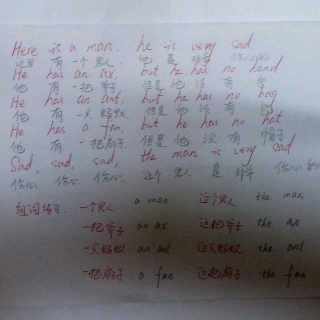 Here is a man. he is very sad
这是 有 一个 男人. 他 是 非常 伤心的
He has an ax, but he has no hand
他 有 一把 斧子 但是 他 没有
He has an ant, but he has no hag
他 有 一只 蚂蚁 但是 他 没有 包
He has a fan, but he has no hat.
他 有 一把 扇子 但是 他 没有 帽子
Sad, sad, sad, the man is very sad
伤心, 伤心, 伤心. 这个 男人 是 非常 伤心
组词练习: 一个男人 a man 这个男人 the man
一把斧子 an ax 这把斧子 the ax
一只蚂蚁 an ant 这只蚂蚁 the ant
一把扇子 a fan 这把扇子 the fan